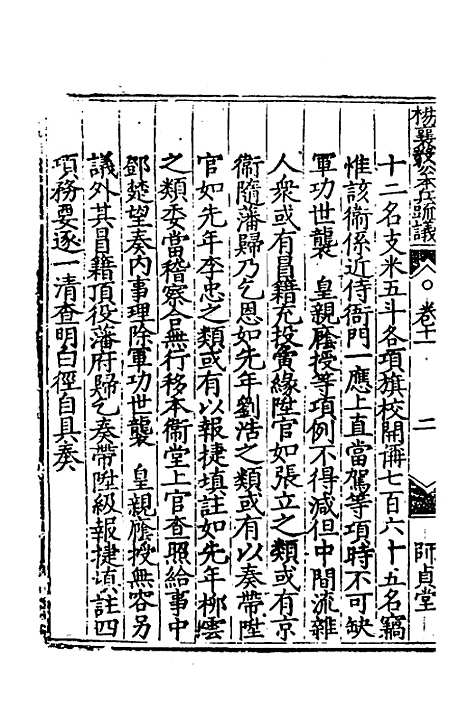 楊襄毅公本兵疏議 卷十一 二 師貞堂
十二名支米五斗各項旗校開冊七百六十五名竊
惟該衞係近侍衙門一應上直當駕等項時不可缺
軍功世襲 皇親廕授等項例不得減但中間流雜
人衆或有冒籍充投夤緣陞官如張立之類或有京
衞隨藩歸乃乞恩如先年劉浩之類或有以奏帶陞
官如先年李忠之類或有以報捷填註如先年柳澐
之類委當稽察合無行移本衞堂上官查照給事中
鄧楚望奏內事理除軍功世襲 皇親廕授無容另
議外其冒籍頂役藩府歸乞奏帶陞級報捷填註四
項務要逐一清查明白徑自具奏